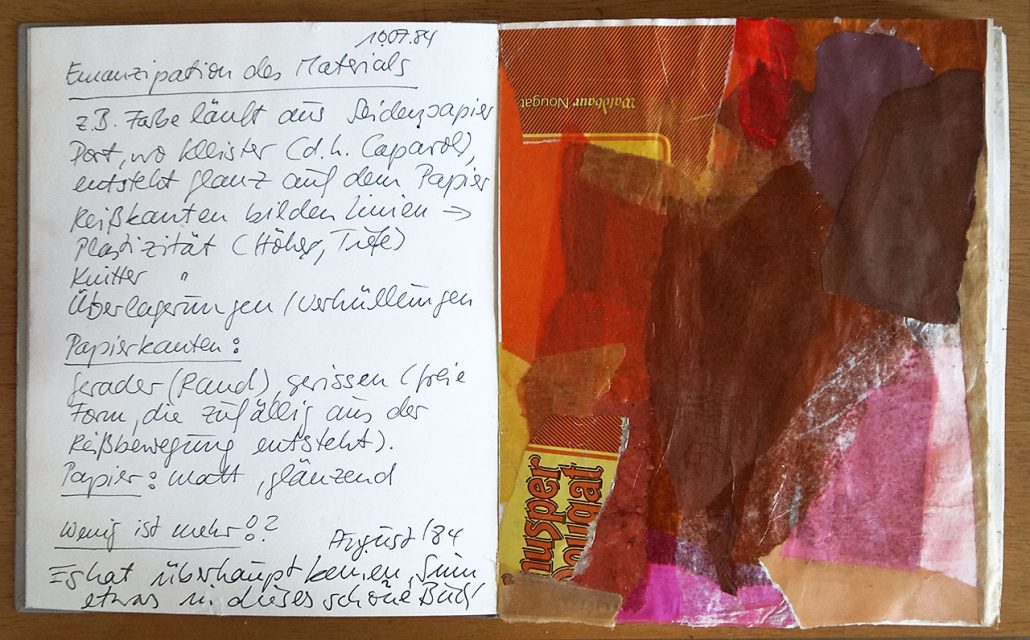 10.07.84
Emanzipation des Materials
z.B. Farbe läuft aus Seidenpapier
Dort, wo Kleister (d.h. Caparol),
entsteht Glanz auf dem Papier
Reißkanten bilden Linien →
Plastizität (Höhe, Tiefe)
Knitter "
Überlagerungen / Verhüllungen
Papierkanten:
gerader (Rand), gerissen (freie
Form, die zufällig aus der
Reißbewegung entsteht).
Papier: matt, glänzend
Wenig ist mehr!?
August /84
Es hat überhaupt keinen Sinn
etwas in dieses schöne Buch
Waldbaur Nougat
nusper
Nougat